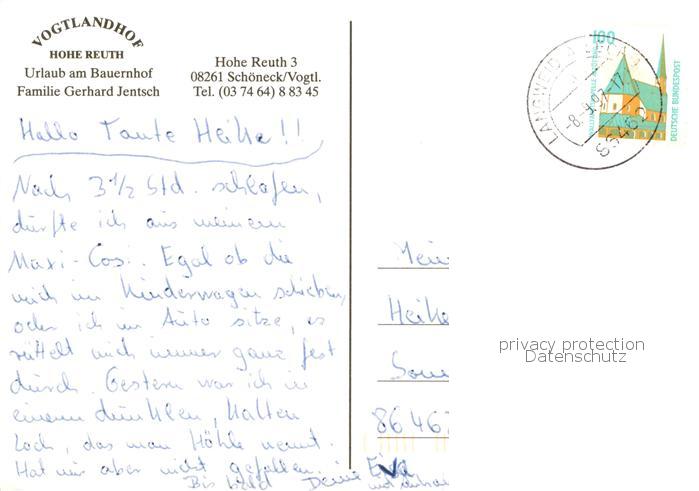 VOGTLANDHOF
HOHE REUTH
Urlaub am Bauernhof
Familie Gerhard Jentsch
Hohe Reuth 3
08261 Schöneck/Vogtl.
Tel. (03 74 64) 8 83 45
Hallo Tante Heike!!
Nach 3 1/2 Std. schlafen,
dürfte ich aus meinem
Maxi-Cosi. Egal ob die
mich im Kinderwagen schieben,
oder ich im Auto sitze, es
rüttelt mich immer ganz fest
durch. Gestern war ich in
einem dunklen, kalten
Loch, das man Höhle nennt.
Hat mir aber nicht gefallen.
Bis bald Deine
Heike
86 467
100
DEUTSCHE BUNDESPOST
LANGWEID A
-8.-9.97-17
86462
privacy protection
Datenschutz